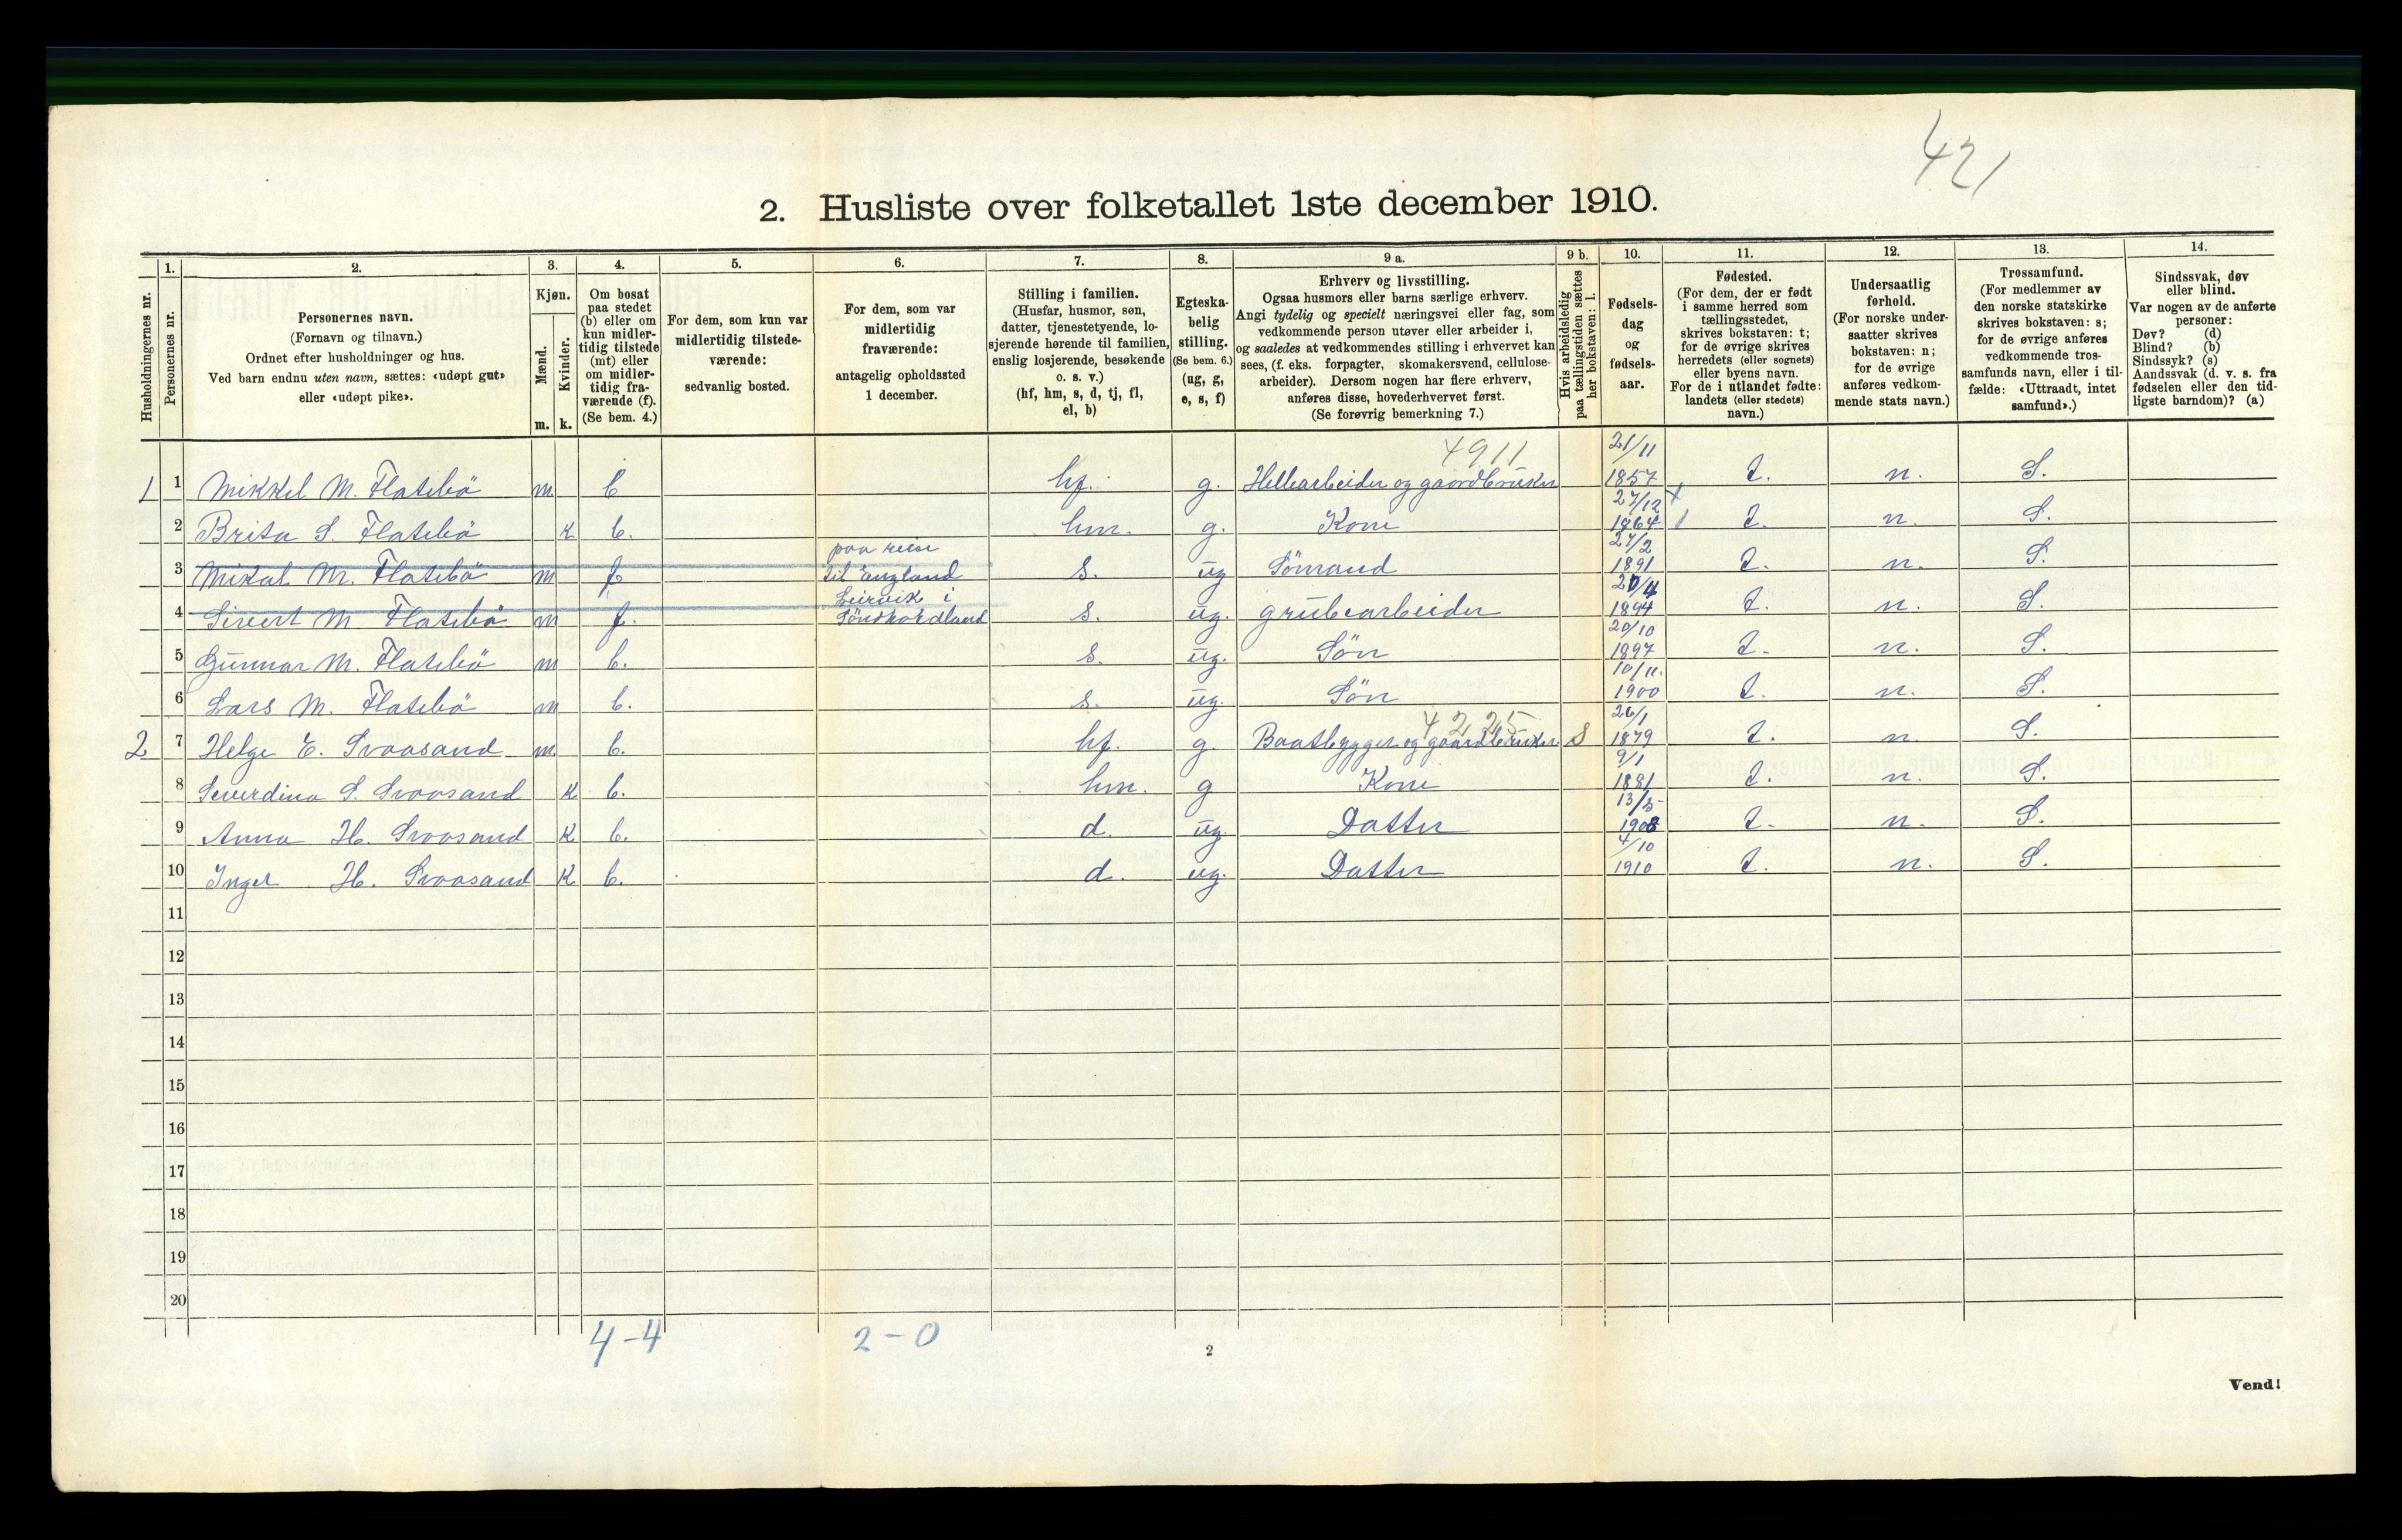 421
2. Husliste over folketallet 1ste december 1910.
Husholdningernes nr.
1.
Personernes nr.
2.
Personernes navn.
(Fornavn og tilnavn.)
Ordnet efter husholdninger og hus.
Ved barn endnu uten navn, sættes: «udøpt gut»
eller «udøpt pike».
3.
Kjøn.
Mænd.
Kvinder.
m. k.
4.
Om bosat
paa stedet
(b) eller om
kun midler-
tidig tilstede
(mt) eller
om midler-
tidig fra-
værende (f).
(Se bem. 4.)
5.
For dem, som kun var
midlertidig tilstede-
værende:
sedvanlig bosted.
6.
For dem, som var
midlertidig
fraværende:
antagelig opholdssted
1 december.
7.
Stilling i familien.
(Husfar, husmor, søn,
datter, tjenestetyende, lo-
sjerende hørende til familien,
enslig losjerende, besøkende
o. s. v.)
(hf, hm, s, d, tj, fl,
el, b)
8.
Egteska-
belig
stilling.
(Se bem. 6.)
(ug, g,
e, s, f)
9 a.
Erhverv og livsstilling.
Ogsaa husmors eller barns særlige erhverv.
Angi tydelig og specielt næringsvei eller fag, som
vedkommende person utøver eller arbeider i,
og saaledes at vedkommendes stilling i erhvervet kan
sees, (f. eks. forpagter, skomakersvend, cellulose-
arbeider). Dersom nogen har flere erhverv,
anføres disse, hovederhvervet først.
(Se forøvrig bemerkning 7.)
9 b.
Hvis arbeidsledig
paa tællingstiden sættes
her bokstaven: l.
10.
Fødsels-
dag
og
fødsels-
aar.
11.
Fødested.
(For dem, der er født
i samme herred som
tællingsstedet,
skrives bokstaven: t;
for de øvrige skrives
herredets (eller sognets)
eller byens navn.
For de i utlandet fødte:
landets (eller stedets)
navn.)
12.
Undersaatlig
forhold.
(For norske under-
saatter skrives
bokstaven: n;
for de øvrige
anføres vedkom-
mende stats navn.)
13.
Trossamfund.
(For medlemmer av
den norske statskirke
skrives bokstaven: s;
for de øvrige anføres
vedkommende tros-
samfunds navn, eller i til-
fælde: «Uttraadt, intet
samfund».)
14.
Sindssvak, døv
eller blind.
Var nogen av de anførte
personer:
Døv? (d)
Blind? (b)
Sindssyk? (s)
Aandssvak (d. v. s. fra
fødselen eller den tid-
ligste barndom)? (a)
1 1 Mikkel M. Flatebö m b hf. g. 4911 Hellearbeider og gaardbruker 21/11 1857 t. n. S.
2 Brita S. Flatebö k b. hm. g. Kone 27/12 1864 t. n. S.
3 Mikal M. Flatebö m f paa reise til England s. ug Sömand 27/2 1891 t. n. S.
4 Sivert M Flatebö m f. Leirvik i Söndhordland s. ug. grubearbeider 1894 t. n. S.
5 Gunnar M. Flatebö m b. s. ug. Sön 20/10 1897 t. n. S.
6 Lars M. Flatebö m b. s. ug. Sön 10/11. 1900 t. n. S.
2 7 Helge E. Svaasand m. b. hf. g. 4225 Baatbygger og gaardbruker S 26/1 1879 t. n. S.
8 Severdina S. Svaasand k b. hm. g Kone 9/1 1881 t. n. S.
9 Anna H. Svaasand k b. d. ug. Datter 1908 t. n. S.
10 Inger H. Svaasand k b. d. ug. Datter 4/10 1910 t. n. S.
11
12
13
14
15
16
17
18
19
20
4-4 2-0
2
Vend!